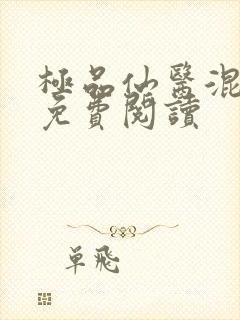 極品仙醫混
免費閱讀
單飛